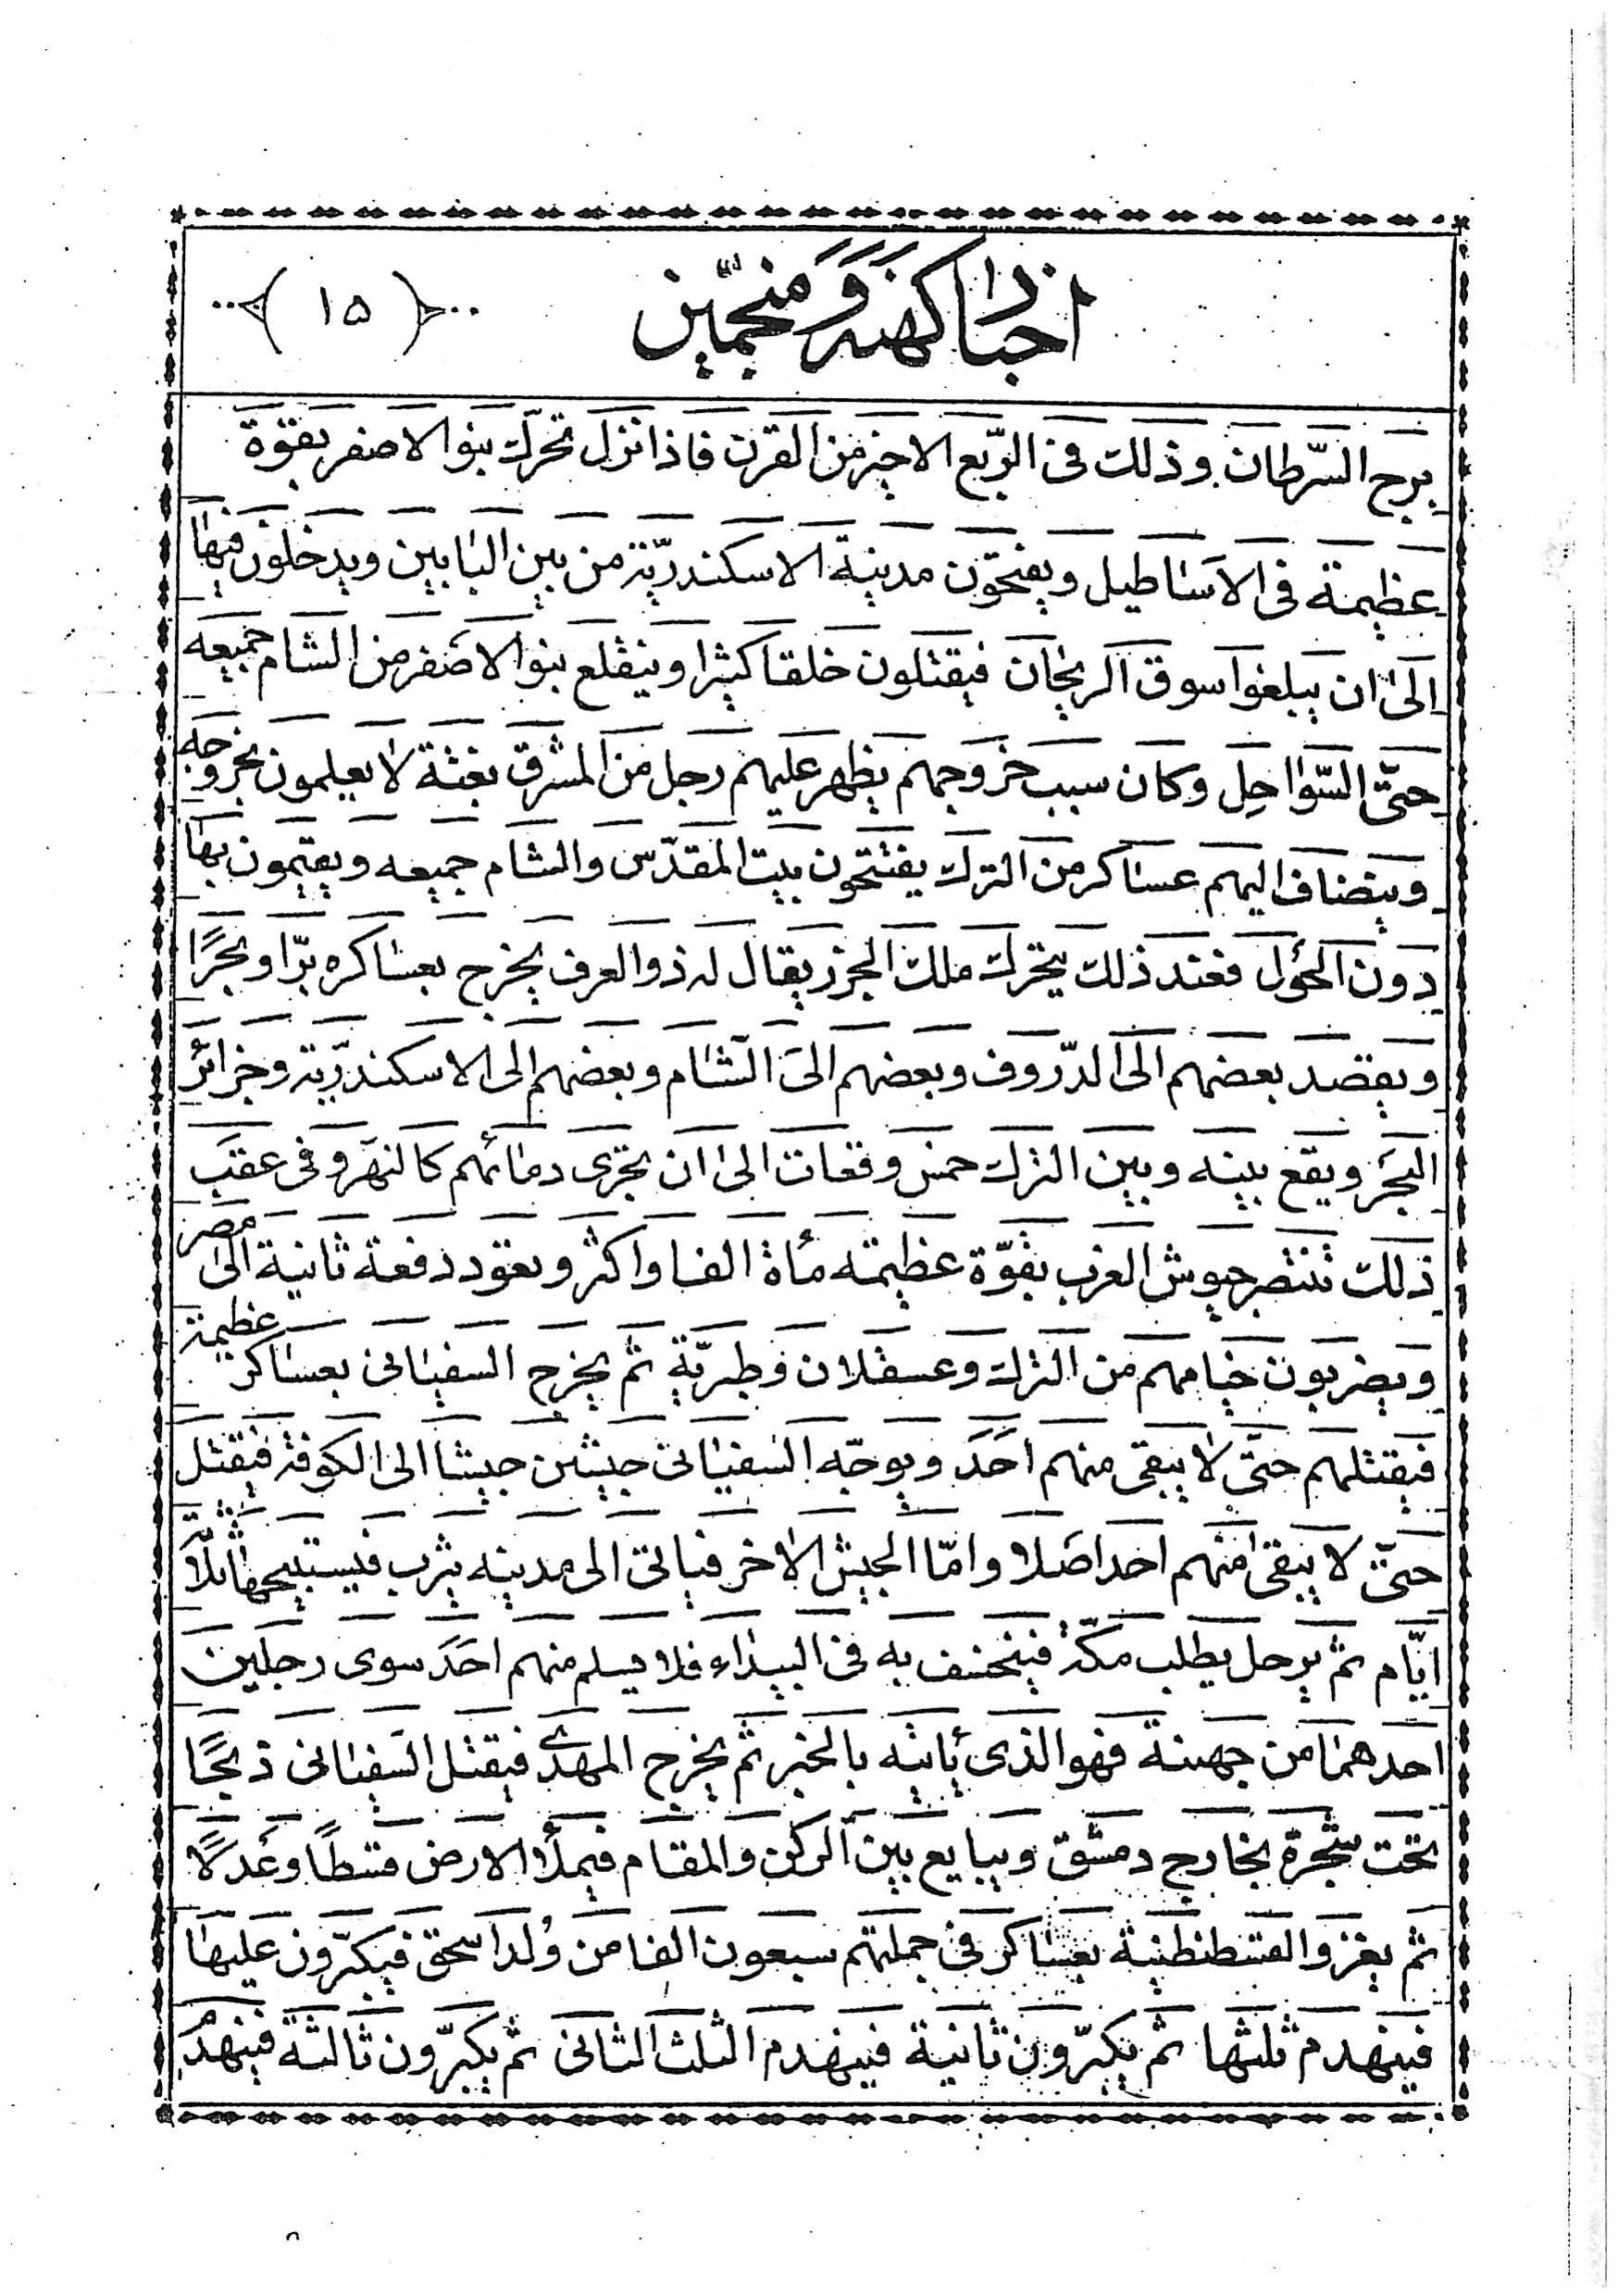 اخبار كهنه و منجّمين
(١٥)
برج السّرطان وذلك فى الرّبع الاخير من القرن فاذا نزل تحرّك بنو الاصفر بقوّة
عظيمة فى الاساطيل ويفتحون مدينة الاسكندريّة من بين البابين ويدخلون فيها
الى ان يبلغوا سوق الريحان فيقتلون خلقا كثيرا وينقلع بنو الاصفر من الشام جميعه
حتّى السّواحل وكان سبب خروجهم يظهر عليهم رجل من المشرق بغتة لا يعلمون بخروجه
ويتضاف اليهم عساكر من الترك يفتتحون بيت المقدّس والشام جميعه ويقيمون بها
دون الحول فعند ذلك يتحرك ملك الجزر يقال له ذو العرف يخرج بعساكره برّا وبحرًا
ويقصد بعضهم الى الدّروف وبعضهم الى الشام وبعضهم الى الاسكندريّة وجزائر
البحر ويقع بينه وبين الترك خمس وقعات الى ان تجرى دمائهم كالنهر وفى عقب
ذلك تنتصر جيوش الغرب بقوّة عظيمة مأة الفا واكثر وتعود دفعة ثانية الى مصر
ويضربون خيامهم من الترك وعسقلان وطبريّة ثم يخرج السفيانى بعساكر عظيمة
فيقتلهم حتّى لا يبقى منهم احد ويوجّه السفيانى جيشين جيشا الى الكوفة فيقتل
حتّى لا يبقى منهم احد اصلا وامّا الجيش الاخر فيأتى الى مدينه يثرب فيستبيحها ثلاثة
ايّام ثم يرحل يطلب مكّة فينخسف به فى البيداء فلا يسلم منهم احد سوى رجلين
احدهما من جهينة فهو الذى يأتيه بالخبر ثم يخرج المهدى فيقتل السفيانى ذبحًا
تحت شجرة بخارج دمشق ويبايع بين الركن والمقام فيملأ الارض قسطًا وعدلًا
ثم يغزو القسطنطنية بعساكر فى جملتهم سبعون الفا من ولد اسحق فيكبّرون عليها
فينهدم ثلثها ثم يكبّرون ثانية فينهدم الثلث الثانى ثم يكبّرون ثالثة فينهدم